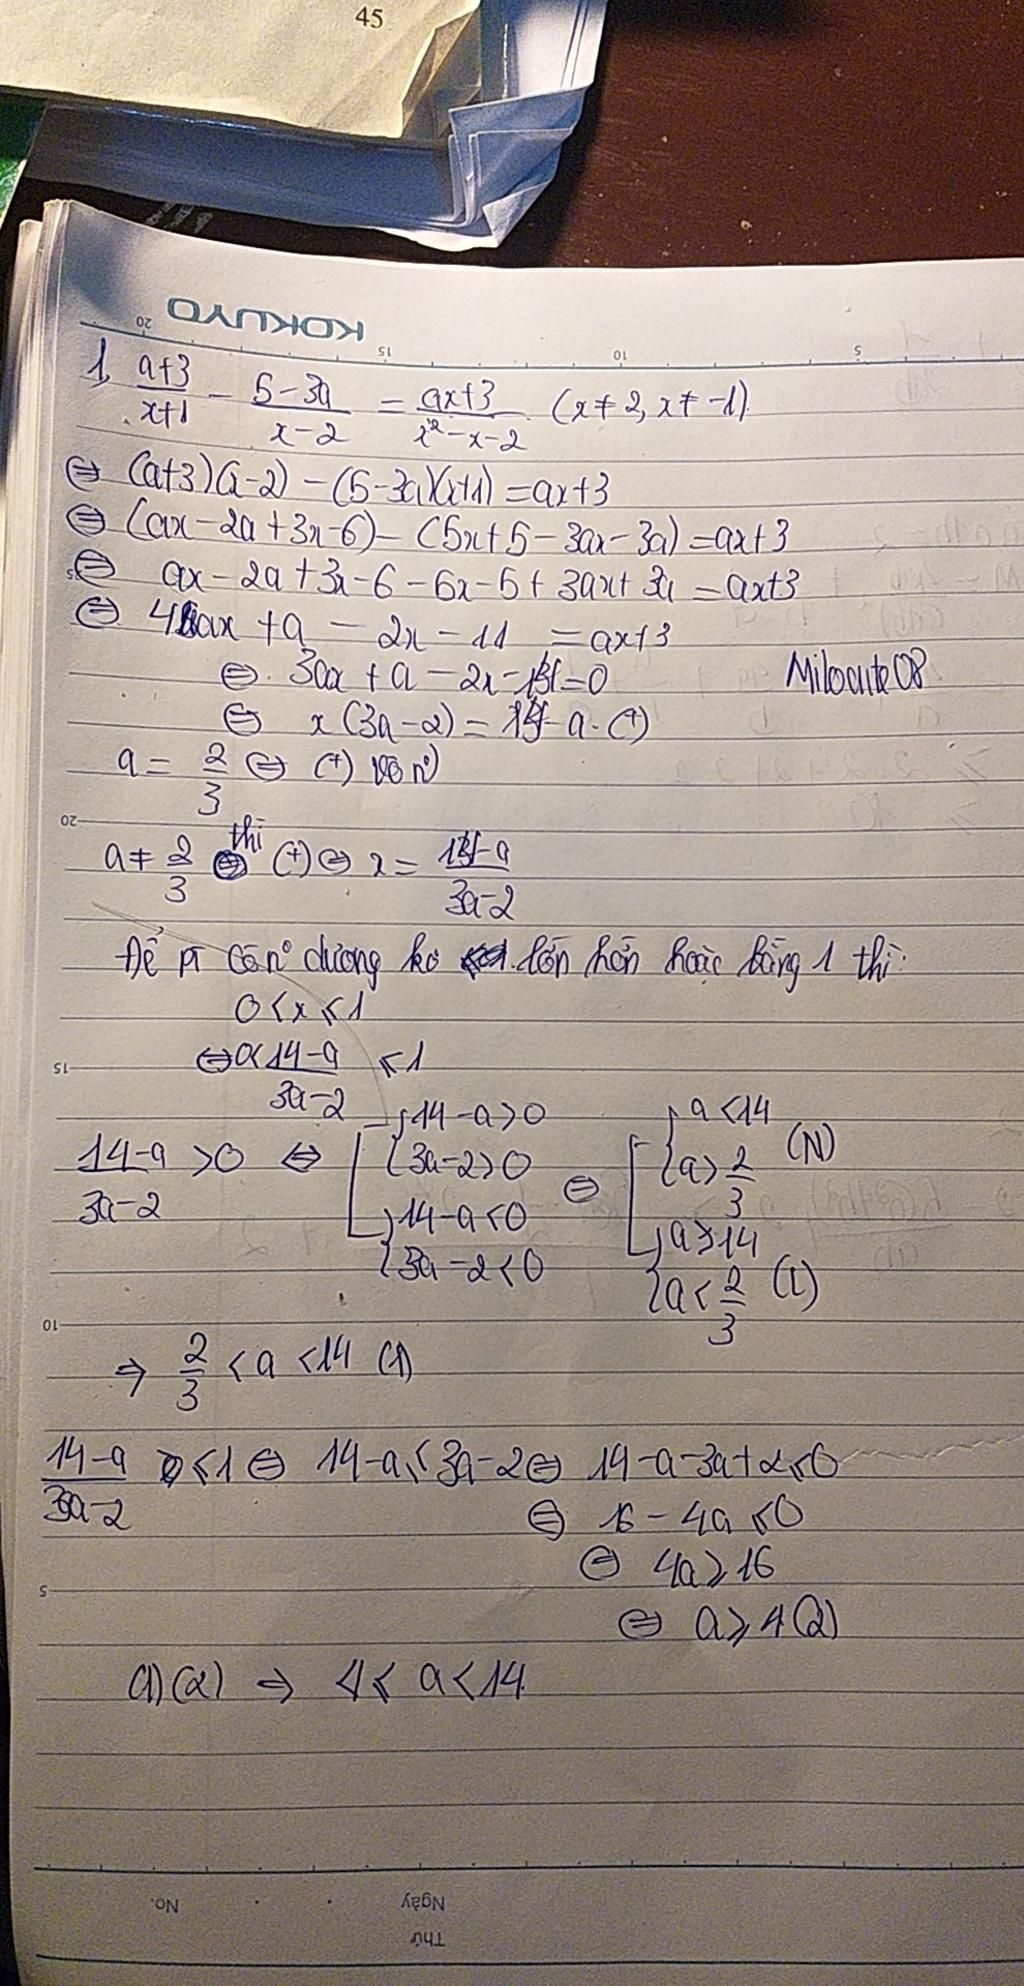 45
KOKUYO
20 15 10 5
1, \frac{a+3}{x+1} - \frac{5-3a}{x-2} = \frac{ax+3}{x²-x-2} (x≠2, x≠-1)
⇔ (a+3)(x-2) - (5-3a)(x+1) = ax+3
⇔ (ax-2a+3x-6) - (5x+5-3ax-3a) = ax+3
⇔ ax-2a+3x-6-5x-5+3ax+3a = ax+3
⇔ 4ax + a - 2x - 11 = ax+3
⇔ 3ax + a - 2x - 14 = 0
Milocute08
⇔ x(3a-2) = 14-a (+)
a = \frac{2}{3} ⇔ (+) vô n°
20
a ≠ \frac{2}{3} thì (+) ⇔ x = \frac{14-a}{3a-2}
Để pt có n° dương ko lớn hơn hoặc bằng 1 thì:
0 < x ≤ 1
15 ⇔ 0 < \frac{14-a}{3a-2} ≤ 1
\frac{14-a}{3a-2} > 0 ⇔ [ { 14-a>0 { 3a-2>0 { 14-a<0 { 3a-2<0 ⇔ [ { a<14 { a>\frac{2}{3} (N) { a≥14 { a<\frac{2}{3} (L)
10
⇒ \frac{2}{3} < a < 14 (1)
\frac{14-a}{3a-2} ≤ 1 ⇔ 14-a ≤ 3a-2 ⇔ 14-a-3a+2 ≤ 0
⇔ 16 - 4a ≤ 0
5 ⇔ 4a ≥ 16
⇔ a ≥ 4 (2)
(1)(2) ⇒ 4 ≤ a < 14
No. Ngày
Thứ